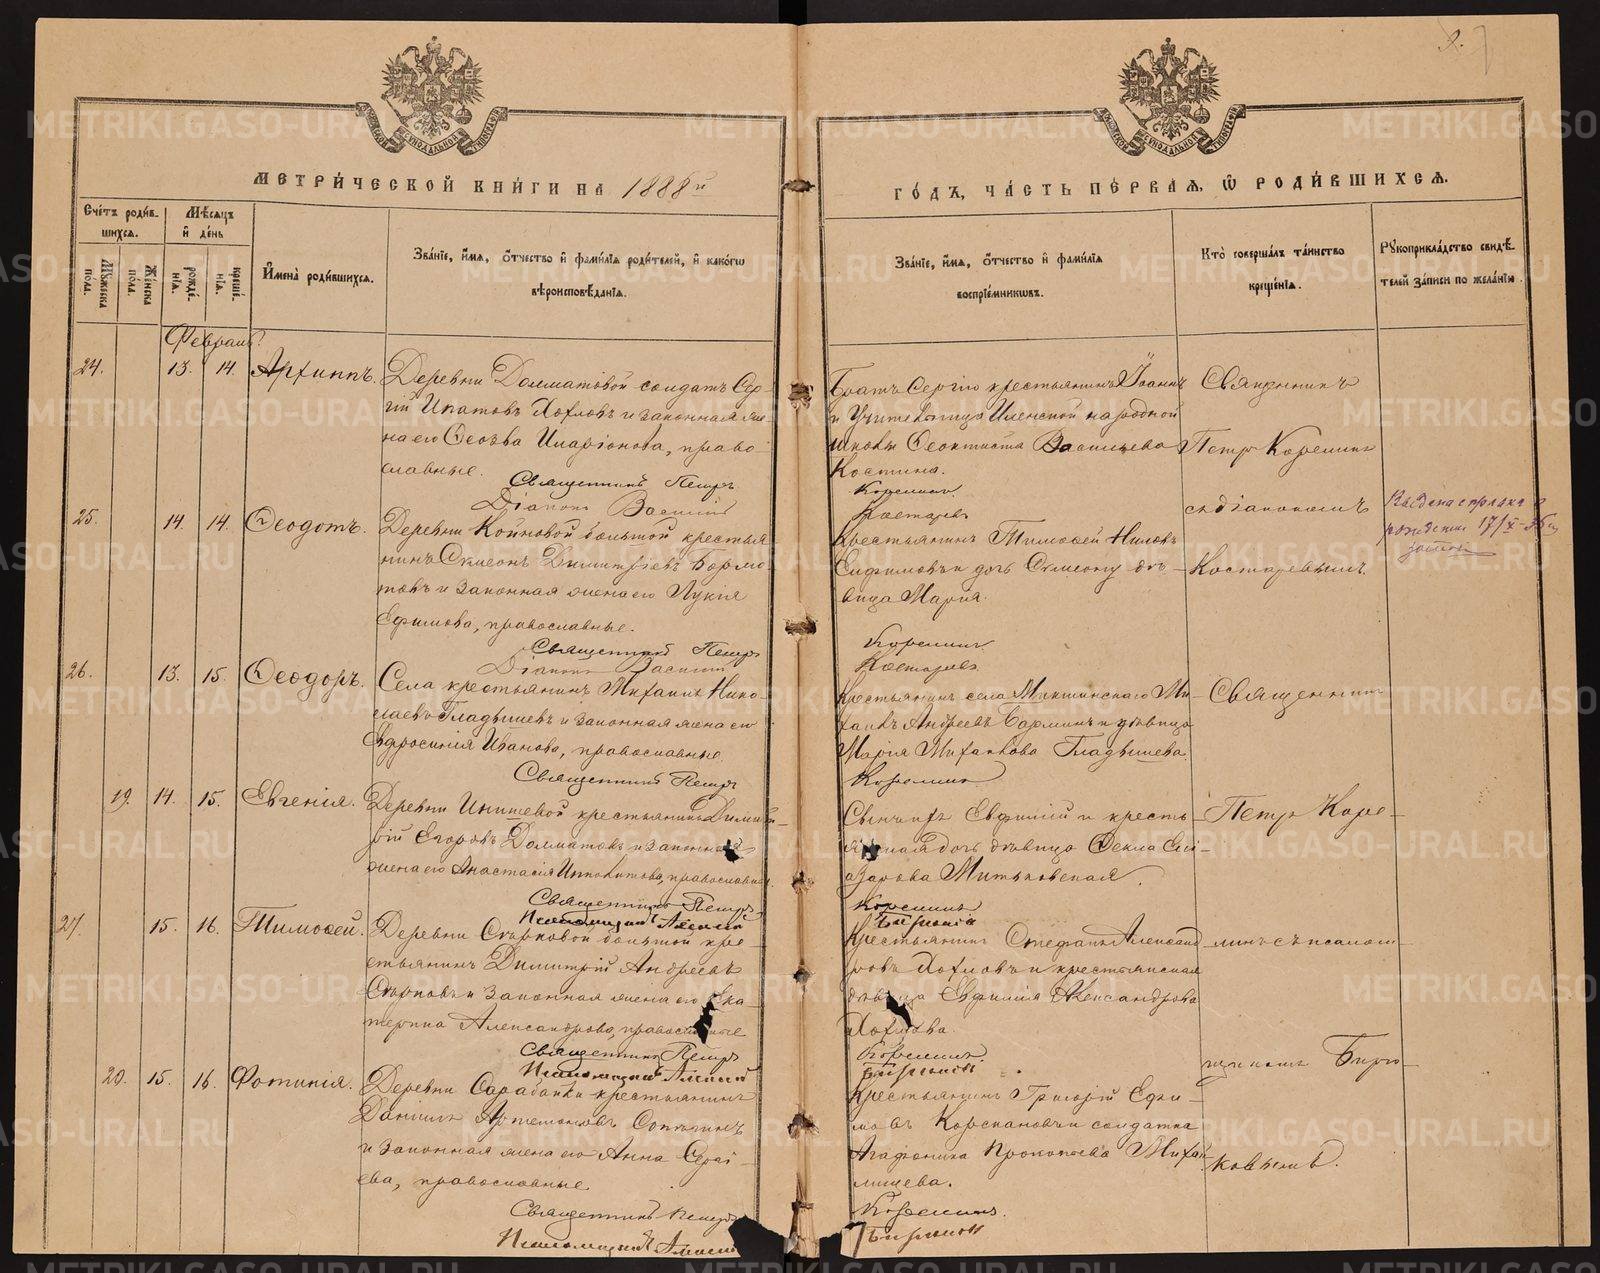 9.
МЕТРИ́ЧЕСКОЙ КНИ́ГИ НА 1888й
ГО́ДЪ, ЧА́СТЬ ПЕ́РВАЯ, Ѡ РОДИ́ВШИХСЯ.
Сче́тъ роди́в-
шихся.
Мѣ́сяцъ
и де́нь
Му́жеска по́ла.
Же́нска по́ла.
рожде́-
нія.
креще́-
нія.
Имена̀ роди́вшихся.
Зва́ніе, и́мя, о́тчество и фами́лія роди́телей, и како́гѡ
вѣроисповѣ́данія.
Зва́ніе, и́мя, о́тчество и фами́лія
воспріе́мниковъ.
Кто̀ соверша́лъ та́инство
креще́нія.
Рукоприкла́дство свидѣ́-
телей за́писи по жела́нію.
Февраль.
24. 13. 14. Архиппъ.
Деревни Долматовой солдатъ Сер-
гій Ипатовъ Хохловъ и законная же-
на его Ѳеозва Иларіонова, право-
славные.
Священникъ Петръ
Діаконъ Василій
Братъ Сергію крестьянинъ Іоаннъ
и Учительница Иленской народной
школы Ѳеоктиста Васильева
Костина.
Корелинъ
Костаревъ
Священникъ
Петръ Корелинъ
25. 14. 14. Ѳеодотъ.
Деревни Койновой большой крестья
нинъ Симеонъ Димитріевъ Бормо-
товъ и законная жена его Лукія
Ефимова, православные.
Священникъ Петръ
Діаконъ Василій
Крестьянинъ Тимоѳей Ниловъ
Ефимовъ и дочь Симеону дѣ-
вица Марія.
Корелинъ
Костаревъ
съ діакономъ
Костаревымъ.
рождении 17/X-36
26. 13. 15. Ѳеодоръ.
Села крестьянинъ Михаилъ Нико-
лаевъ Гладышевъ и законная жена его
Евфросинія Иванова, православные.
Священникъ Петръ
Корелинъ
Крестьянинъ села Микшинскаго Ми-
хаилъ Андреевъ и дѣвица
Марія Михаилова Гладышева
Священникъ
19. 14. 15. Евгенія.
Деревни Инишевой крестьянинъ Димит-
рій Егоровъ Долматовъ и законная
жена его Анастасія Ипполитова, православные.
Священникъ Петръ
Псаломщикъ Алексій
Сынъ ихъ Евфимій и кресть-
янская дочь дѣвица Ѳекла Ели-
азарова Митьковская.
Корелинъ
Бирюковъ
Петръ Коре-
27. 15. 16. Тимоѳей.
Деревни Старковой большой кре-
стьянинъ Димитрій Андреевъ
Старковъ и законная жена его Ека-
терина Александрова, православные
Священникъ Петръ
Псаломщикъ Алексій
Крестьянинъ Стефанъ Александ-
ровъ Хохловъ и крестьянская
дѣвица Евфимія Александрова
Хохлова.
Корелинъ
Бирюковъ
линъ съ псалом-
щикомъ Бирю-
20. 15. 16. Фотинія.
Деревни Сарабайки крестьянинъ
Даніилъ Артемоновъ
и законная жена его Анна Сергі-
ева, православные.
Священникъ Петръ
Псаломщикъ Алексій
Крестьянинъ Григорій Ефи-
мовъ и солдатка
Агафоника Прокопьева Михай-
лищева.
Корелинъ
Бирюковъ
ковымъ.
METRIKI.GASO-URAL.RU